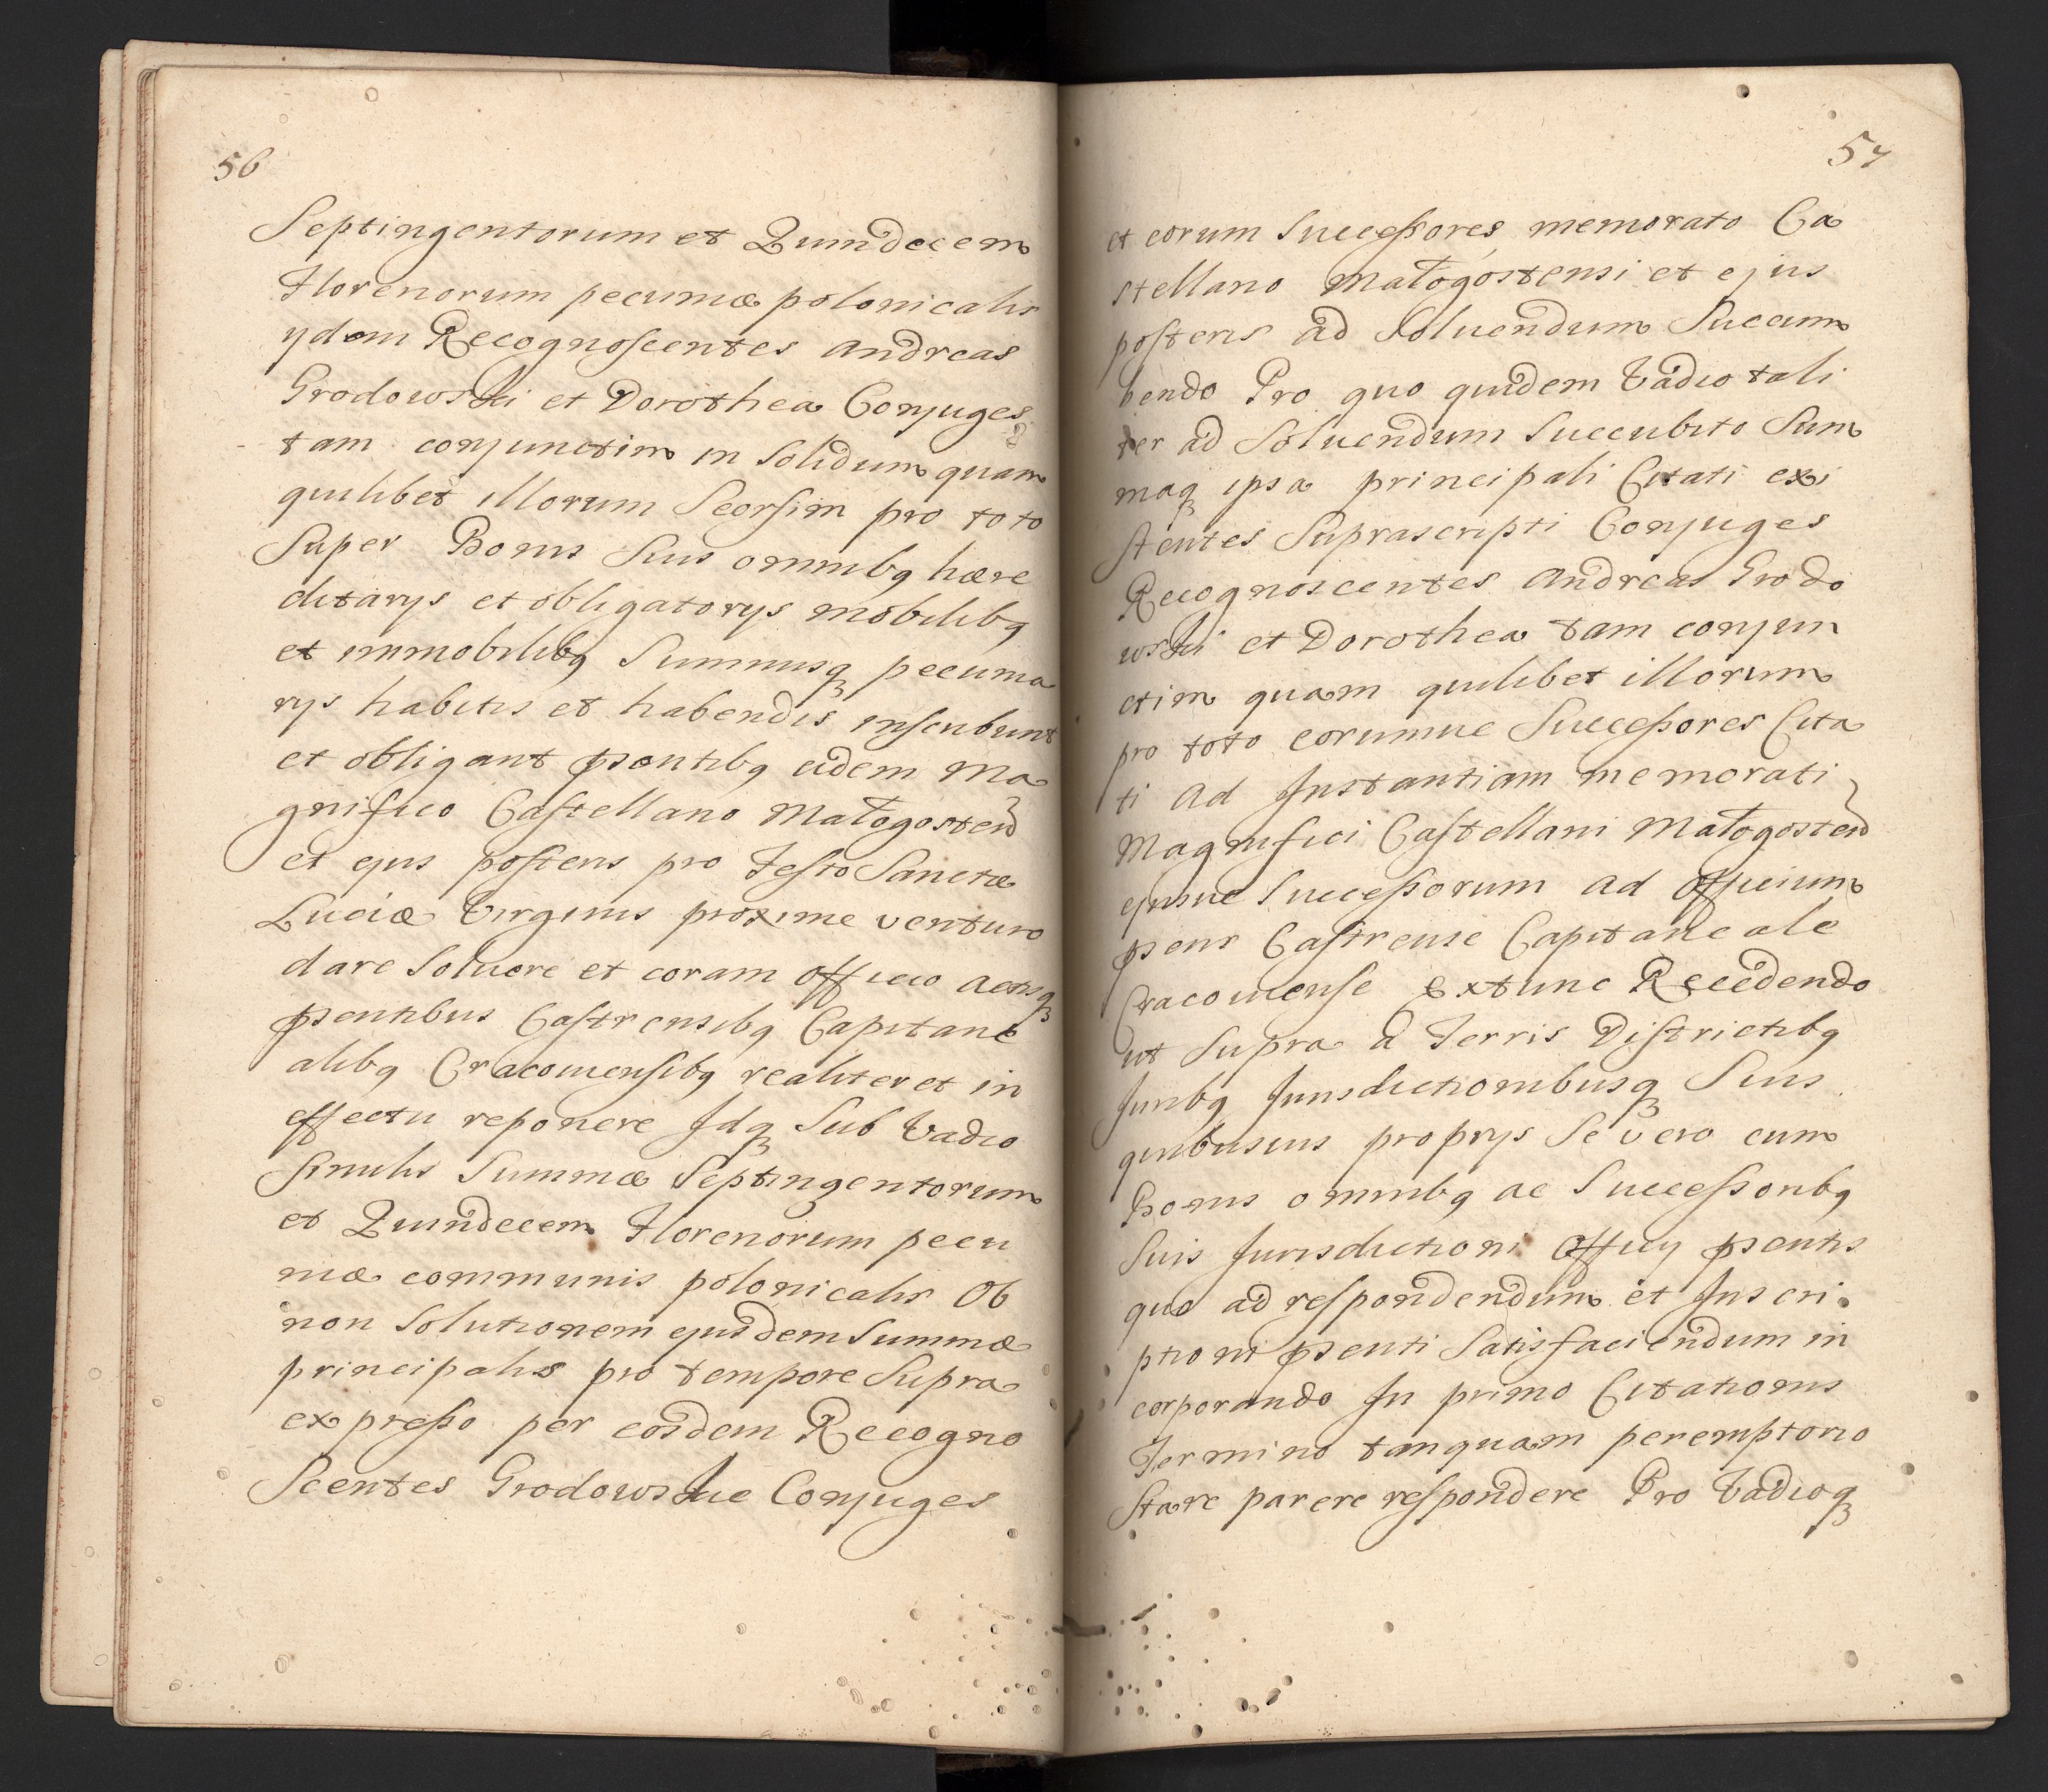 56
Septingentorum et Quindecem
Florenorum pecuniæ polonicalis
ydem Recognoscentes Andreas
Grodowski et Dorothea Conjuges
tam conjunctim in Solidum quam
quilibet illorum Seorsim pro toto
Super Bonis Suis omnibq hære
ditarys et obligatorys mobilibq
et immobilibq Summisq pecunia
rys habitis et habendis inscribunt
et obligant psentibq eidem Ma
gnifico Castellano Małogosten
et ejus posteris pro Festo Sanctæ
Luciæ Virginis proxime venturo
dare Soluere et coram Officio Actisq
psentibus Castrensibq Capitane
alibq Cracouiensibq realiter et in
effectu reponere Idq Sub Vadio
Similis Summæ Septingentorum
et Quindecem Florenorum pecu
niæ communis polonicalis Ob
non Solutionem ejusdem Summæ
principalis pro tempore Supra
expresso per eosdem Recogno
Scentes Grodowskie Conjuges
57
et eorum Successores memorato Ca
stellano Małogostensi et ejus
posteris ad Soluendum Succum
bendo Pro quo quidem Vadio tali
ter ad Soluendum Succubito Sum
maq ipsa principali Citati exi
stentes Suprascripti Conjuges
Recognoscentes Andreas Grodo
wski et Dorothea tam conjun
ctim quam quilibet illorum
pro toto eorumue Successores Cita
ti Ad Instantiam memorati
Magnifici Castellani Małogosten
ejusue Successorum ad Officium
psens Castrense Capitaneale
Cracouiense Extunc Recedendo
ut Supra a Terris Districtibq
Juribq Jurisdictionibusq Suis
quibusuis proprys Se vero cum
Bonis omnibq ac Successoribq
Suis Jurisdictioni Officy psentis
quo ad respondendum et Inscri
ptioni psenti Satisfaciendum in
corporando In primo Citationis
Termino tanquam peremptorio
Stare parere respondere Pro Vadioq